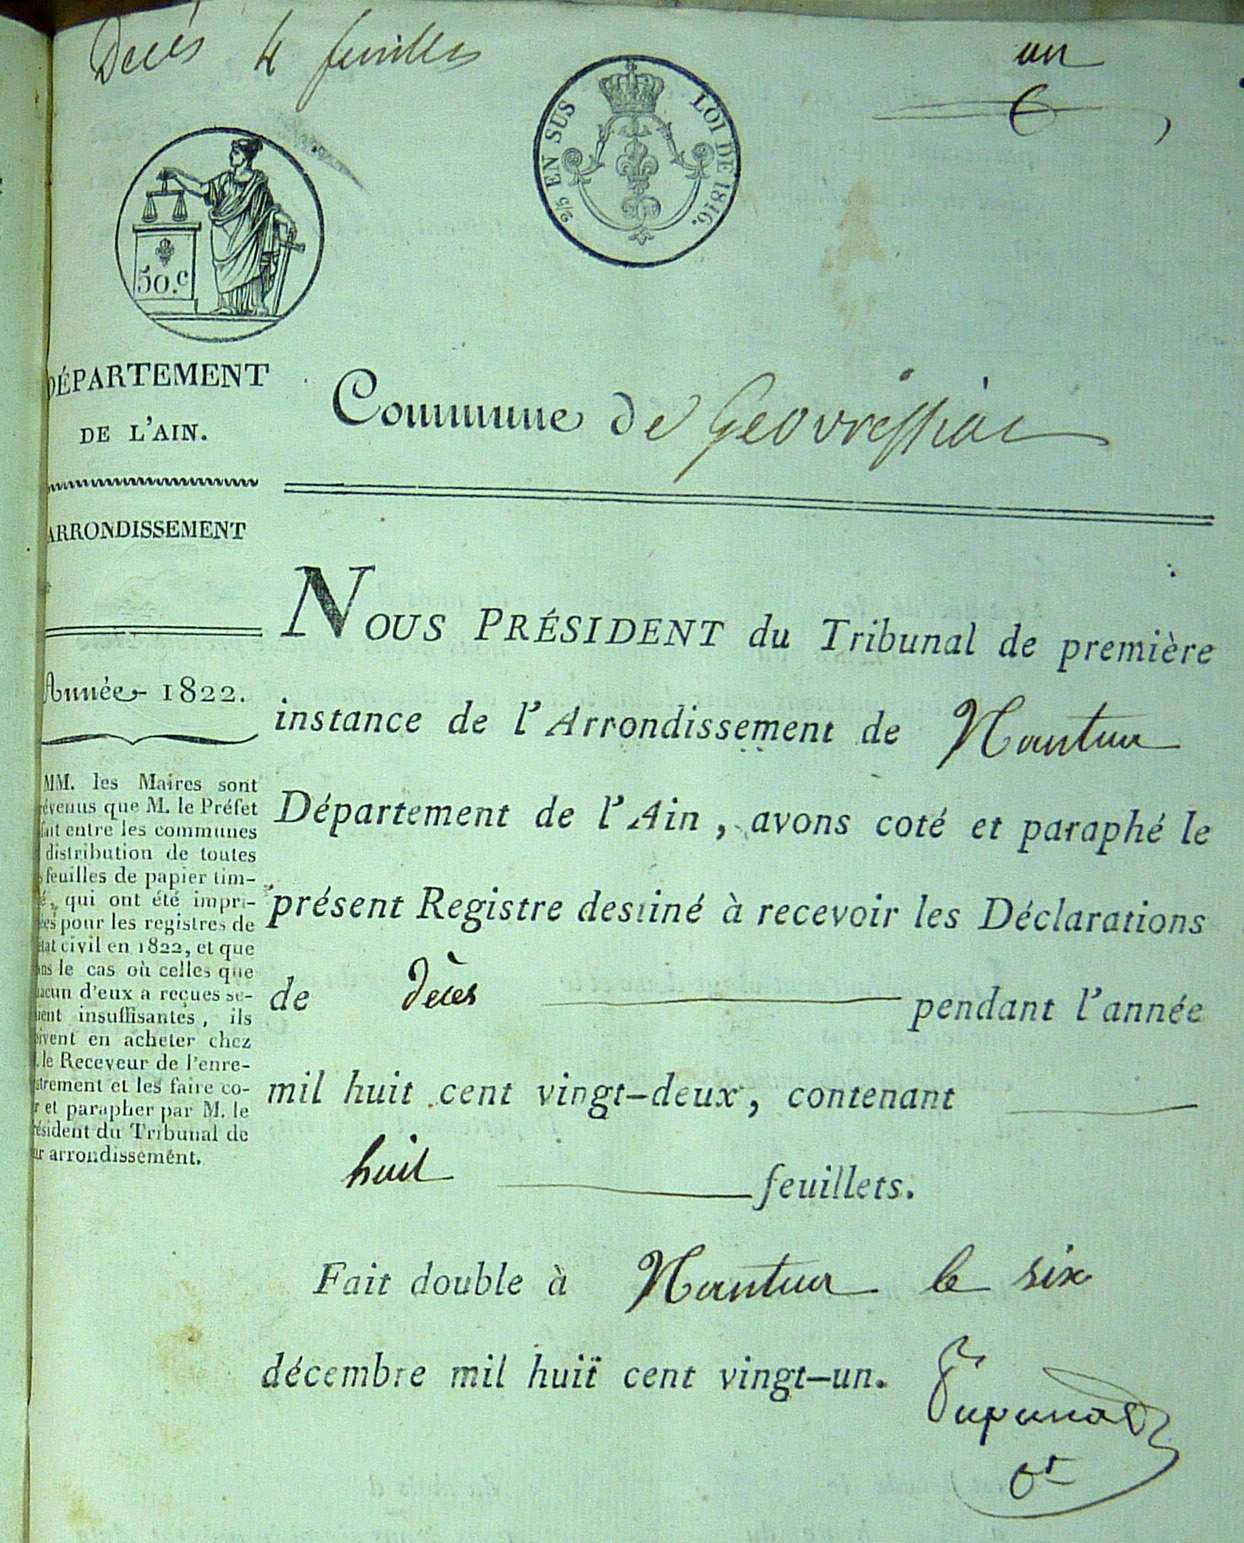 Décès 4 feuilles
un
2/5 EN SUS LOI DE 1816.
50.c
DÉPARTEMENT
DE L'AIN.
Commune de Geovressiat
ARRONDISSEMENT
Année 1822.
NOUS PRÉSIDENT du Tribunal de première
instance de l'Arrondissement de Nantua
Département de l'Ain, avons coté et paraphé le
présent Registre destiné à recevoir les Déclarations
de décès pendant l'année
mil huit cent vingt-deux, contenant
huit feuillets.
Fait double à Nantua le six
décembre mil huit cent vingt-un.
MM. les Maires sont
révenus que M. le Préfet
fait entre les communes
distribution de toutes
feuilles de papier tim-
é, qui ont été impri-
ées pour les registres de
état civil en 1822, et que
ans le cas où celles que
hacun d'eux a reçues se-
aient insuffisantes, ils
oivent en acheter chez
. le Receveur de l'enre-
istrement et les faire co-
r et parapher par M. le
résident du Tribunal de
ur arrondissement.